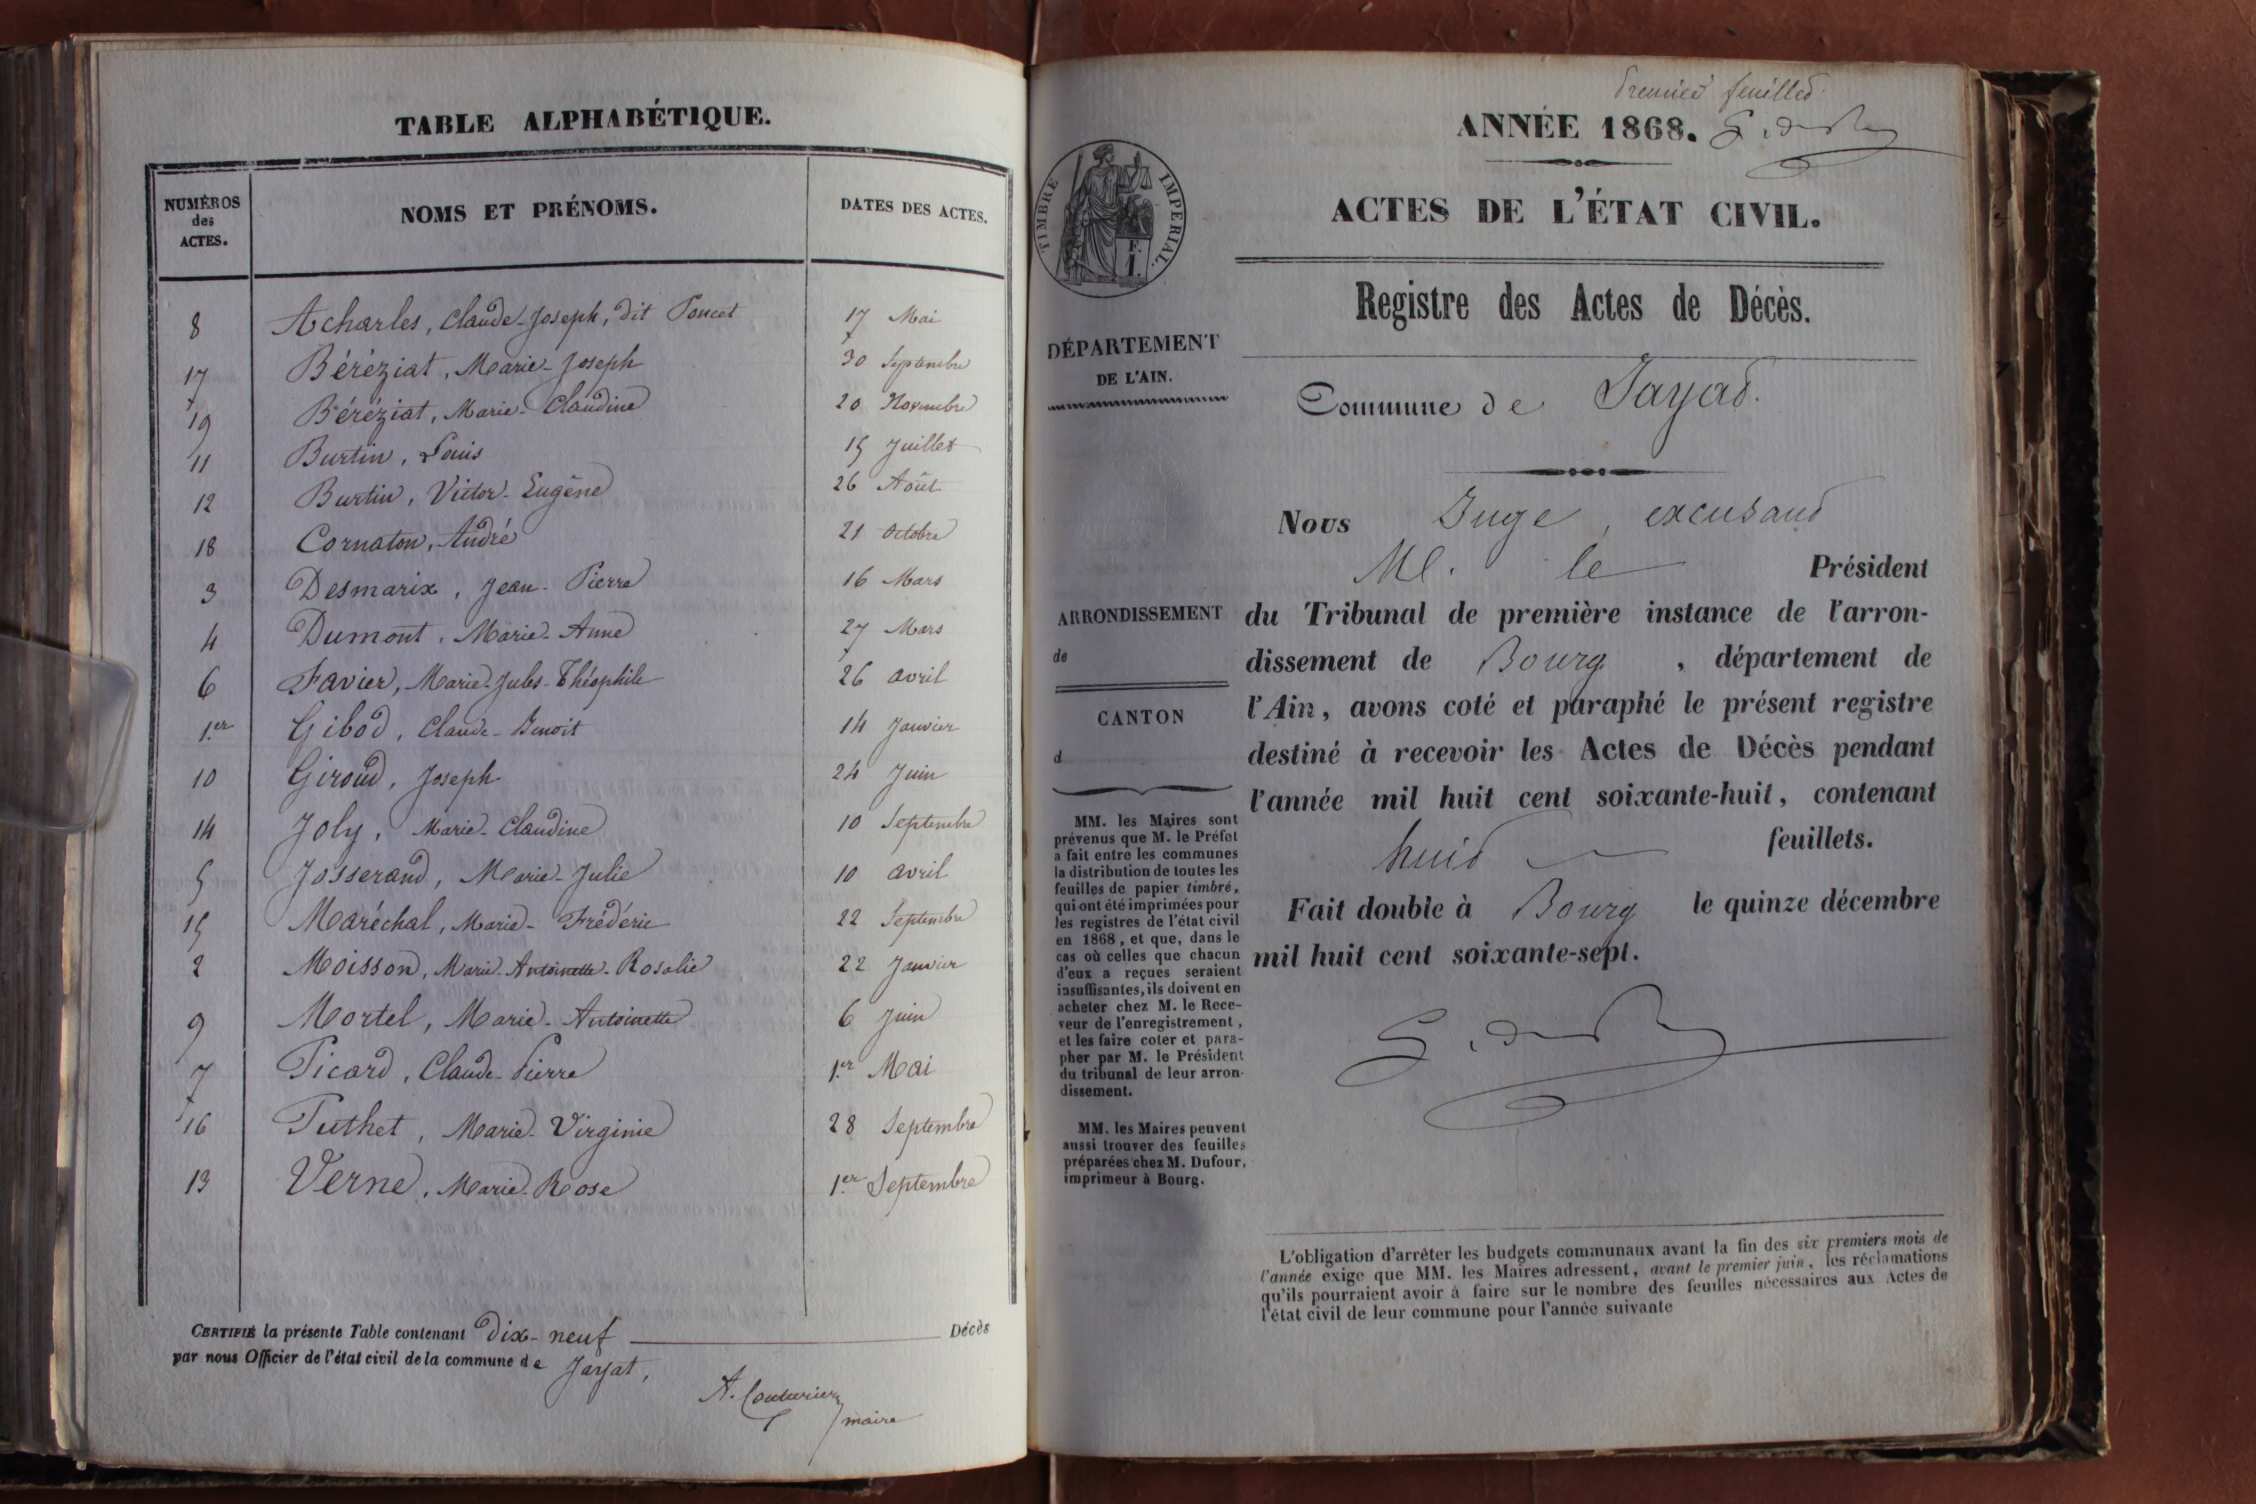 TABLE ALPHABÉTIQUE.
NUMÉROS des ACTES. NOMS ET PRÉNOMS. DATES DES ACTES.
8 Acharles, Claude-Joseph, dit Poncet 17 Mai
17 Béréziat, Marie-Joseph 30 Septembre
19 Béréziat, Marie-Claudine 20 Novembre
11 Burtin, Louis 15 Juillet
12 Burtin, Victor-Eugène 26 Août
18 Cornaton, André 21 Octobre
3 Desmarix, Jean-Pierre 16 Mars
4 Dumont, Marie-Anne 27 Mars
6 Favier, Marie-Jules-Théophile 26 avril
1.er Gibod, Claude-Benoit 14 Janvier
10 Giroud, Joseph 24 Juin
14 Joly, Marie-Claudine 10 Septembre
5 Josserand, Marie-Julie 10 avril
15 Maréchal, Marie-Frédéric 22 Septembre
2 Moisson, Marie-Antoinette-Rosalie 22 Janvier
9 Mortel, Marie-Antoinette 6 Juin
7 Picard, Claude-Pierre 1.er Mai
16 Puthet, Marie-Virginie 28 Septembre
13 Verne, Marie-Rose 1.er Septembre
CERTIFIÉ la présente Table contenant dix-neuf Décès
par nous Officier de l'état civil de la commune de Jayat,
A. Couturier
maire
Premier feuillet
ANNÉE 1868.
ACTES DE L'ÉTAT CIVIL.
TIMBRE IMPERIAL.
Registre des Actes de Décès.
DÉPARTEMENT
DE L'AIN.
Commune de Jayat.
Nous Juge, excusant
M. le Président
ARRONDISSEMENT
de
CANTON
d
du Tribunal de première instance de l'arron-
dissement de Bourg, département de
l'Ain, avons coté et paraphé le présent registre
destiné à recevoir les Actes de Décès pendant
l'année mil huit cent soixante-huit, contenant
huit feuillets.
Fait double à Bourg le quinze décembre
mil huit cent soixante-sept.
MM. les Maires sont
prévenus que M. le Préfet
a fait entre les communes
la distribution de toutes les
feuilles de papier timbré,
qui ont été imprimées pour
les registres de l'état civil
en 1868, et que, dans le
cas où celles que chacun
d'eux a reçues seraient
insuffisantes, ils doivent en
acheter chez M. le Rece-
veur de l'enregistrement,
et les faire coter et para-
pher par M. le Président
du tribunal de leur arron-
dissement.
MM. les Maires peuvent
aussi trouver des feuilles
préparées chez M. Dufour,
imprimeur à Bourg.
L'obligation d'arrêter les budgets communaux avant la fin des six premiers mois de
l'année exige que MM. les Maires adressent, avant le premier juin, les réclamations
qu'ils pourraient avoir à faire sur le nombre des feuilles nécessaires aux Actes de
l'état civil de leur commune pour l'année suivante